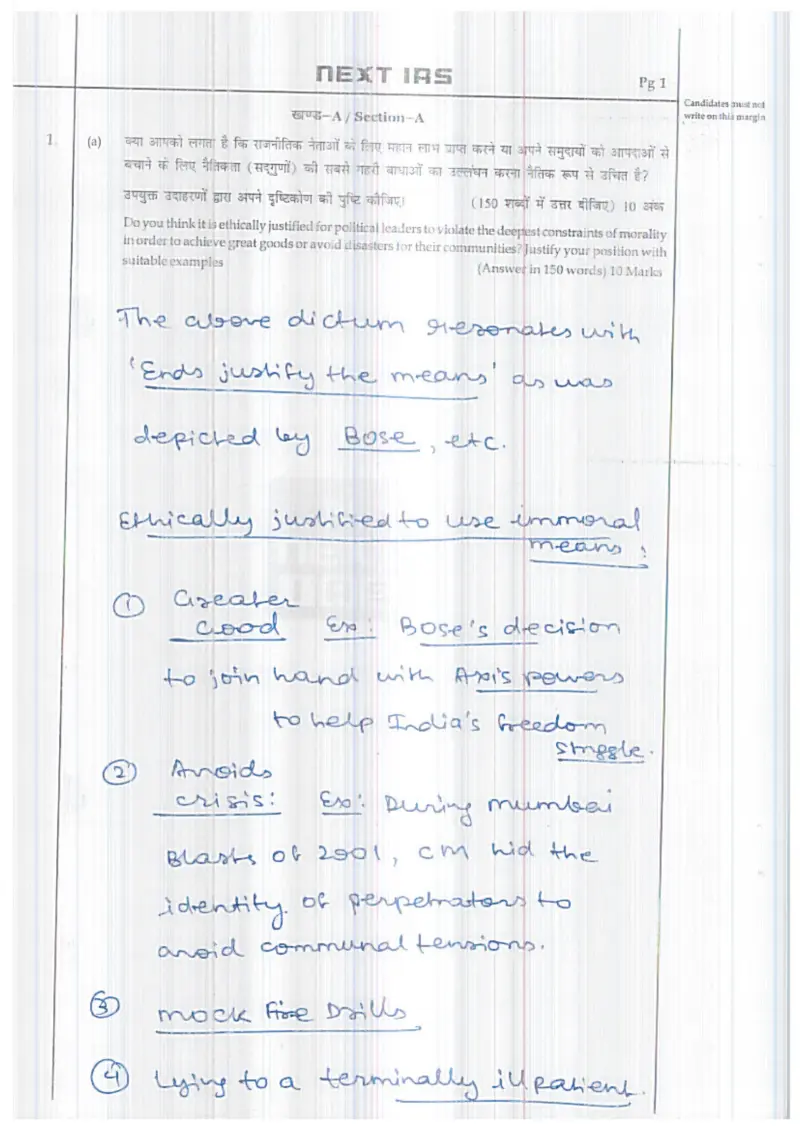 NEXT IAS
Pg 1
Candidates must not
write on this margin
खण्ड-A / Section-A
1. (a) क्या आपको लगता है कि राजनीतिक नेताओं के लिए महान लाभ प्राप्त करने या अपने समुदायों को आपदाओं से
बचाने के लिए नैतिकता (सद्गुणों) की सबसे गहरी बाधाओं का उल्लंघन करना नैतिक रूप से उचित है?
उपयुक्त उदाहरणों द्वारा अपने दृष्टिकोण की पुष्टि कीजिए।
(150 शब्दों में उत्तर दीजिए) 10 अंक
Do you think it is ethically justified for political leaders to violate the deepest constraints of morality
in order to achieve great goods or avoid disasters for their communities? Justify your position with
suitable examples
(Answer in 150 words) 10 Marks
The above dictum resonates with
'Ends justify the means' as was
depicted by Bose, etc.
Ethically justified to use immoral
means:
① Greater
Good Ex: Bose's decision
to join hand with Axis powers
to help India's freedom
struggle.
② Avoids
crisis: Ex: During mumbai
Blasts of 2001, CM hid the
identity of perpetrators to
avoid communal tensions.
③ mock Fire Drills
④ Lying to a terminally ill patient.